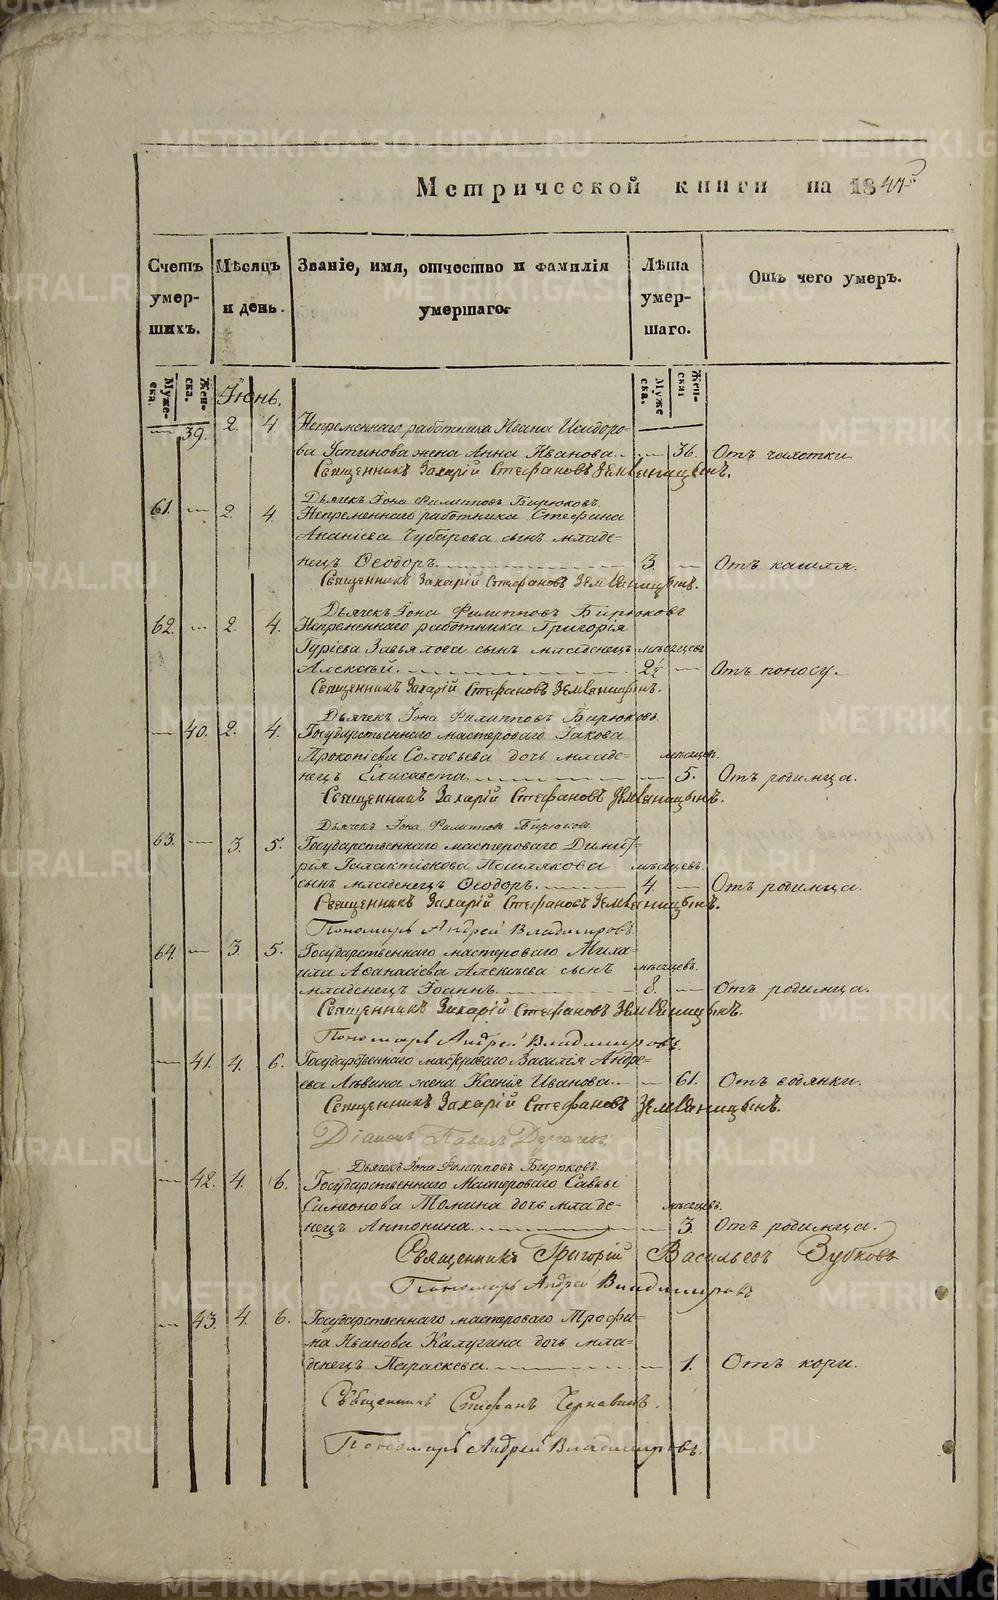 METRIKI.GASO-URAL.RU
Метрической книги на 1847
Счетъ умер-шихъ. Мѣсяцъ и день. Званіе, имя, отчество и фамилія умершаго. Лѣта умер-шаго. Отъ чего умеръ.
Муже-ска. Жен-ска. Іюнь. Муже ска. Жен-ска:
— 39. 2. 4. Непременнаго работника Ивана Исидоро-
ва Устинова жена Анна Иванова. — 36. Отъ чахотки
Священникъ Захарій Стефановъ Земляницынъ.
Дьячекъ Іона Филипповъ Бирюковъ.
61. — 2. 4. Непременнаго работника Стефана
Ананіева Чубарова сынъ младе-
нецъ Ѳеодоръ. 3. — Отъ кашля.
Священникъ Захарій Стефановъ Земляницынъ.
Дьячекъ Іона Филипповъ Бирюковъ
62. — 2. 4. Непременнаго работника Григорія
Гуріева Завьялова сынъ младенецъ мѣсяцевъ
Алексѣй. 2½ — Отъ поносу.
Священникъ Захарій Стефановъ Земляницынъ.
Дьячекъ Іона Филипповъ Бирюковъ
— 40. 2. 4. Государственнаго мастероваго Іакова
Прокопіева Соловьева дочь младе- мѣсяцев.
нецъ Елисавета. — 5. Отъ родимца.
Священникъ Захарій Стефановъ Земляницынъ.
Дьячекъ Іона Филипповъ Бирюковъ
63. — 3. 5. Государственнаго мастероваго Димит-
рія Галактіонова Пошлякова мѣсяцевъ.
сынъ младенецъ Ѳеодоръ. 4. — Отъ родимца.
Священникъ Захарій Стефановъ Земляницынъ.
Пономарь Андрей Владимировъ
64. — 3. 5. Государственнаго мастероваго Миха-
ила Аѳанасіева Алексѣева сынъ мѣсяцевъ.
младенецъ Іоаннъ. 8. — Отъ родимца.
Священникъ Захарій Стефановъ Земляницынъ.
Пономарь Андрей Владимировъ
— 41. 4. 6. Государственнаго мастероваго Василія Андре-
ева Львина жена Ксенія Иванова. — 61. Отъ водянки.
Священникъ Захарій Стефановъ Земляницынъ.
Діаконъ Павелъ
Дьячекъ Іона Филипповъ Бирюковъ.
— 42. 4. 6. Государственнаго Мастероваго Саввы
Симеонова Томина дочь младе- мѣсяцевъ.
нецъ Антонина. — 3. Отъ родимца.
Священникъ Григорій Васильевъ Зубковъ
Пономарь Андрей Владимировъ
— 43. 4. 6. Государственнаго мастероваго Трофи-
ма Иванова Калугина дочь мла-
денецъ Параскева. — 1. Отъ кори.
Священникъ Стефанъ Чернавинъ.
Пономарь Андрей Владимировъ.